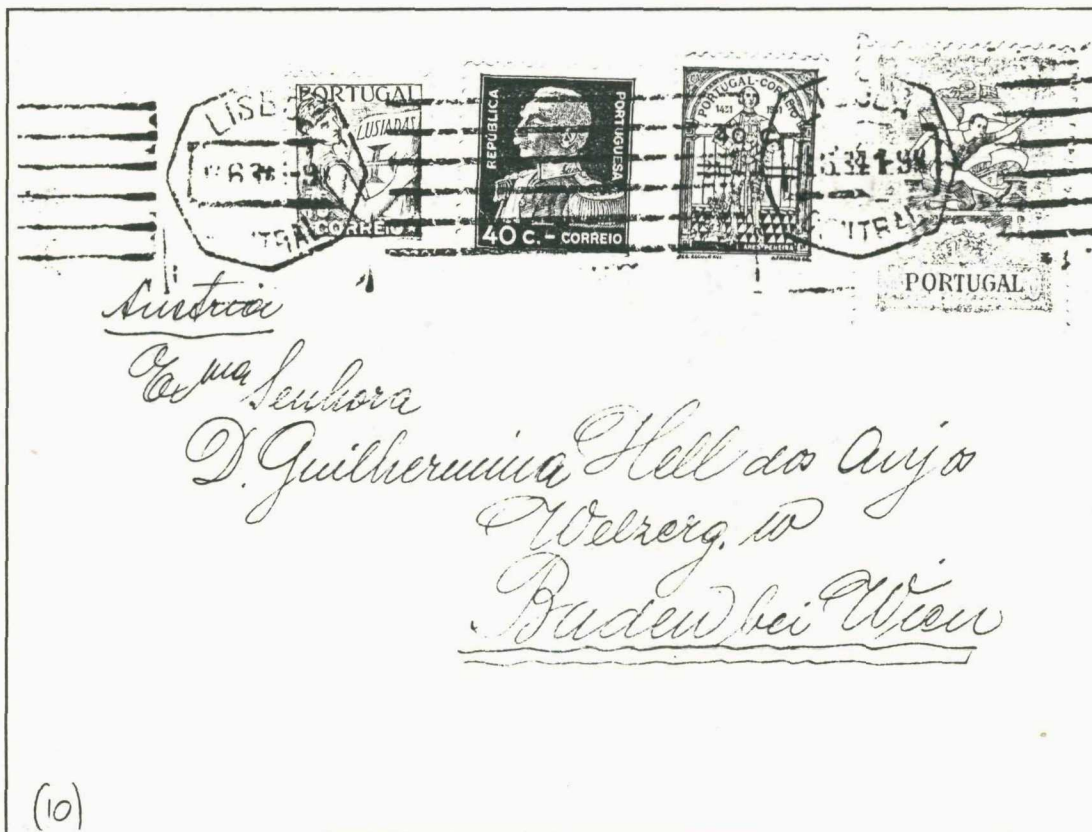 PORTUGAL
LUSIADAS
CORREIO
REPÚBLICA
PORTUGUESA
40 C. - CORREIO
PORTUGAL-CORREIO
1431
40 C
PORTUGAL
Austria
Exma Senhora
D. Guilhermina Hell dos Anjos
Welzerg. 10
Baden bei Wien
(10)